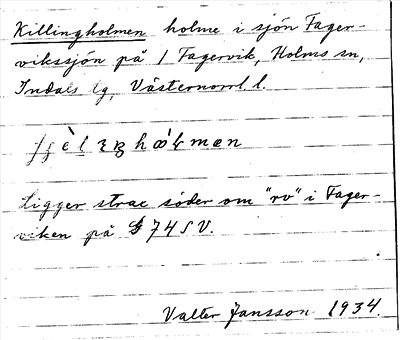 Killingholmen holme i sjön Fager-
vikssjön på 1 Fagervik, Holms sn,
Indals tg, Västernorrl. l.
Ligger strax söder om "rv" i Fager-
viken på G 74 S V.
Valter Jansson 1934.